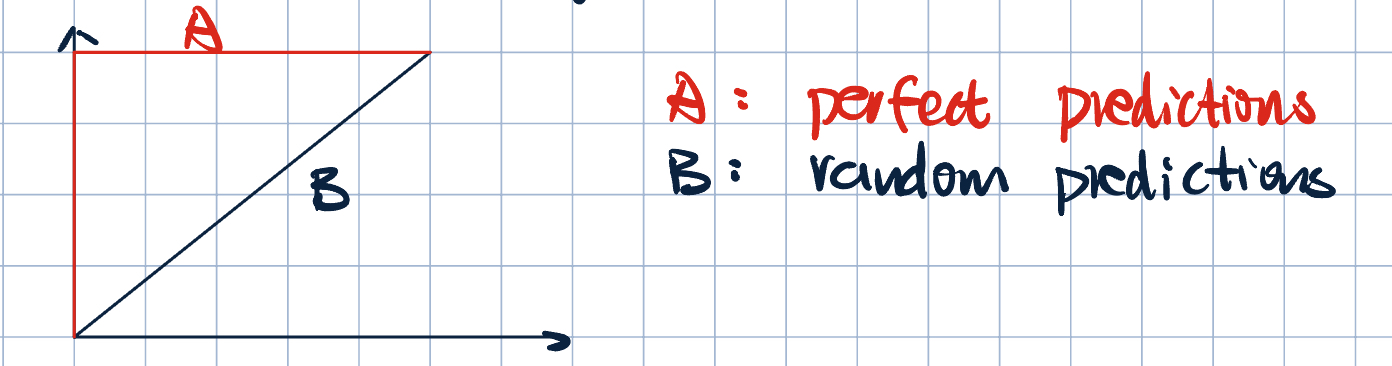 A
B
A: perfect predictions
B: random predictions